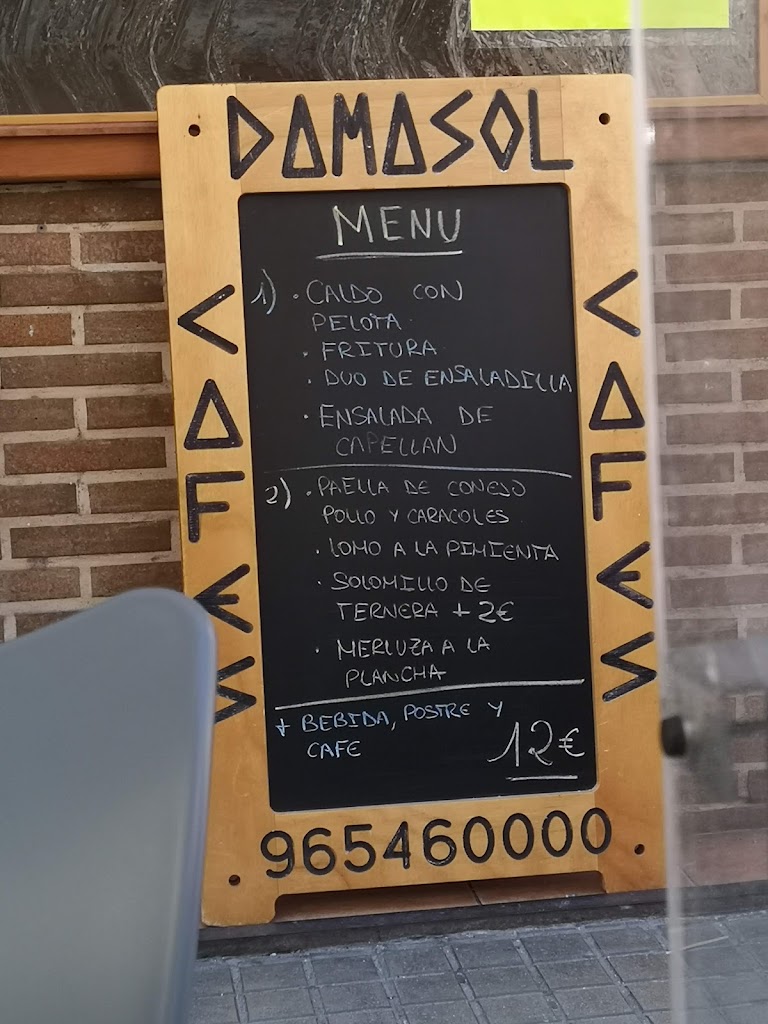 DAMASOL
CAFES
CAFES
MENU
1) · CALDO CON
PELOTA
· FRITURA
· DUO DE ENSALADILLA
· ENSALADA DE
CAPELLAN
2) · PAELLA DE CONEJO
POLLO Y CARACOLES
· LOMO A LA PIMIENTA
· SOLOMILLO DE
TERNERA + 2€
· MERLUZA A LA
PLANCHA
+ BEBIDA, POSTRE Y
CAFE
12€
965460000